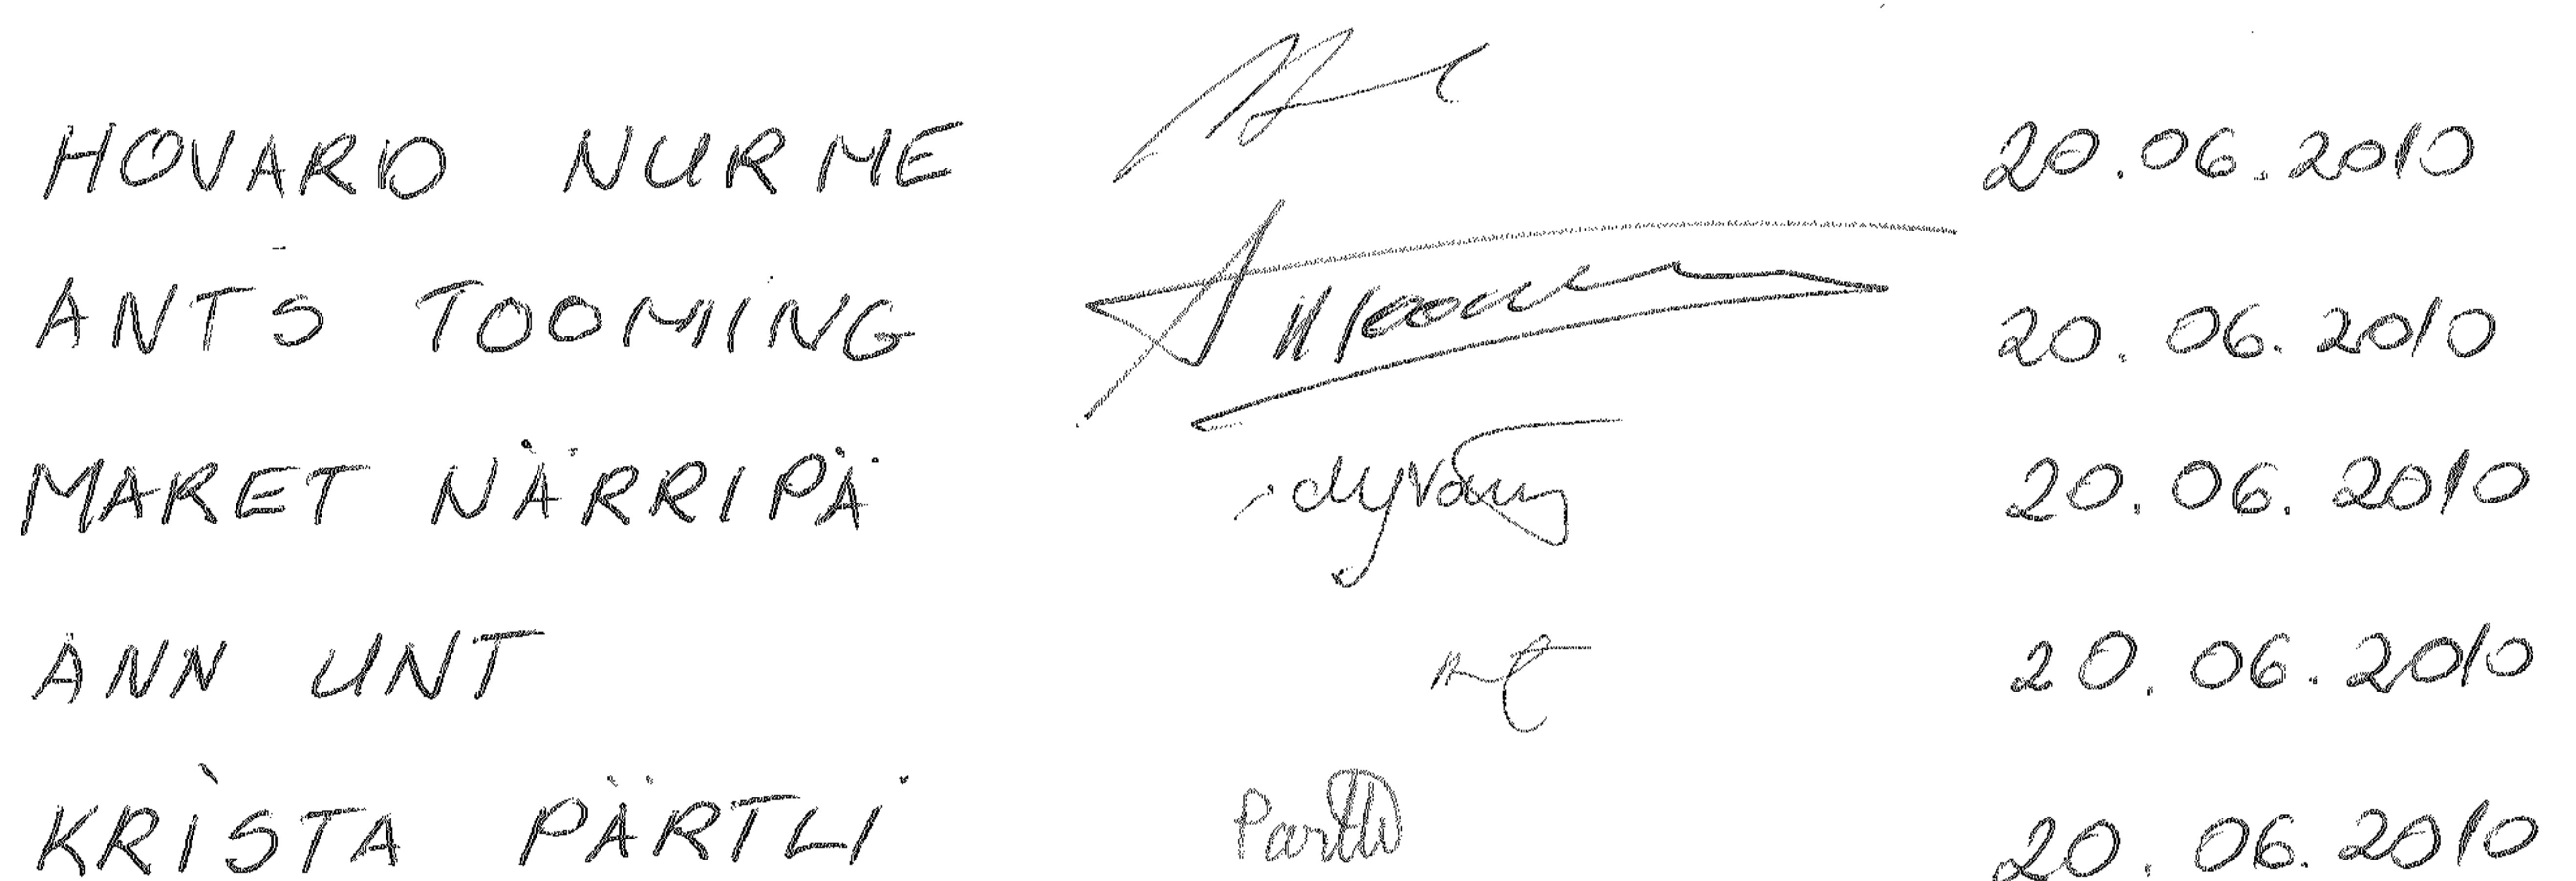 HOVARD NURME 20.06.2010
ANTS TOOMING 20.06.2010
MARET NÄRRIPÄ 20.06.2010
ANN UNT 20.06.2010
KRISTA PÄRTLI Pärtli 20.06.2010